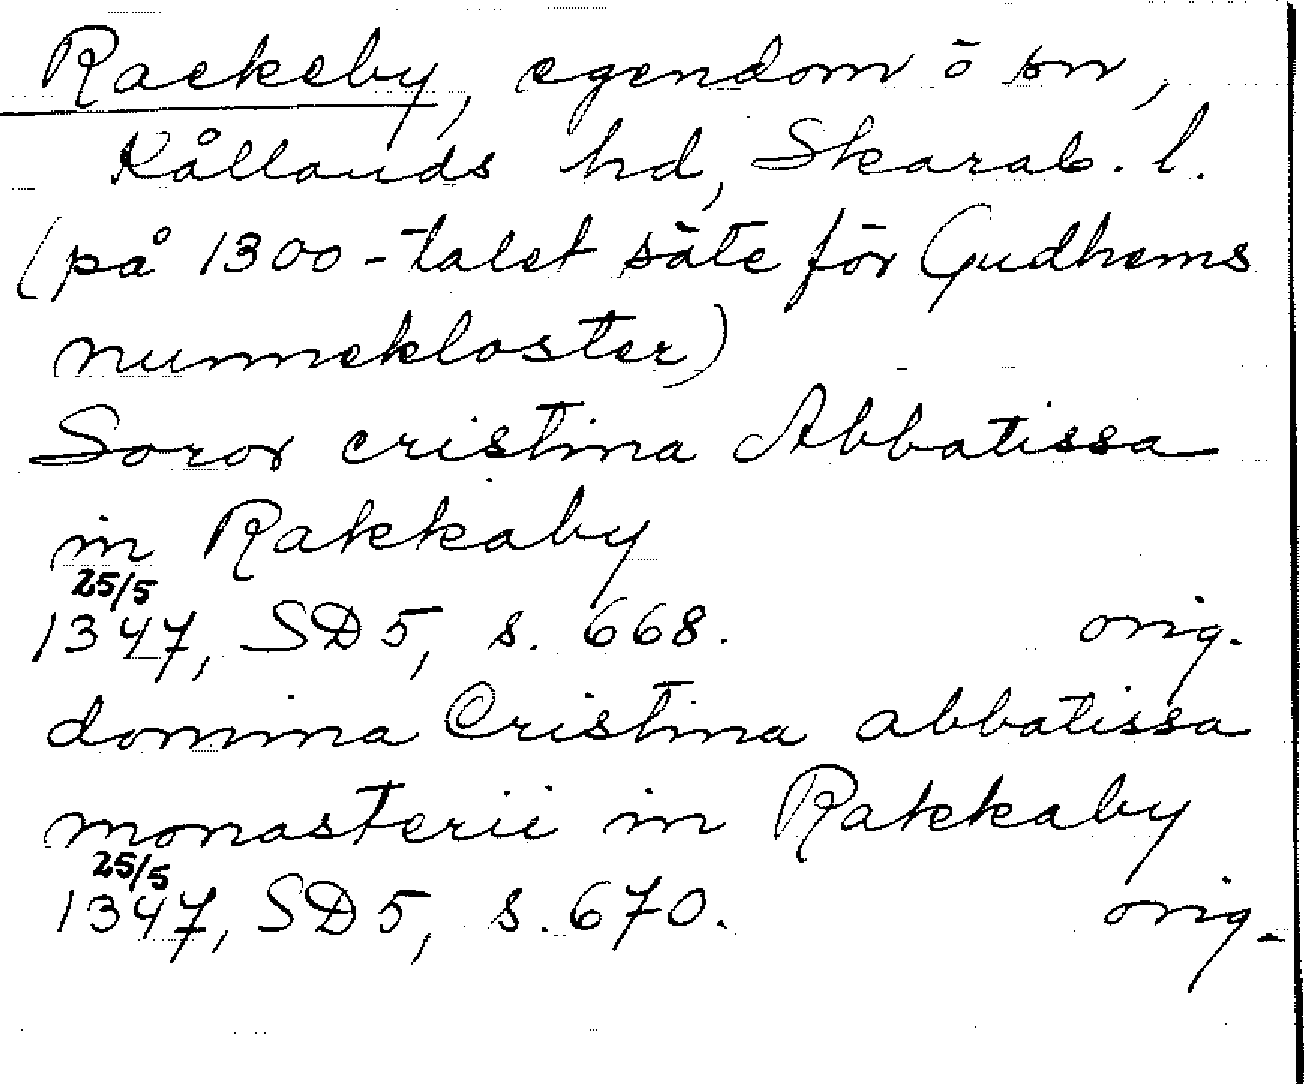 Rackeby, egendom o sn,
Kållands hd, Skarab. l.
(på 1300-talet säte för Gudhems
nunnekloster)
Soror cristina Abbatissa
in Rakkaby
25/5
1347, SD 5, s. 668. orig.
domina Cristina abbatissa
monasterii in Rakkaby
25/5
1347, SD 5, s. 670. orig.